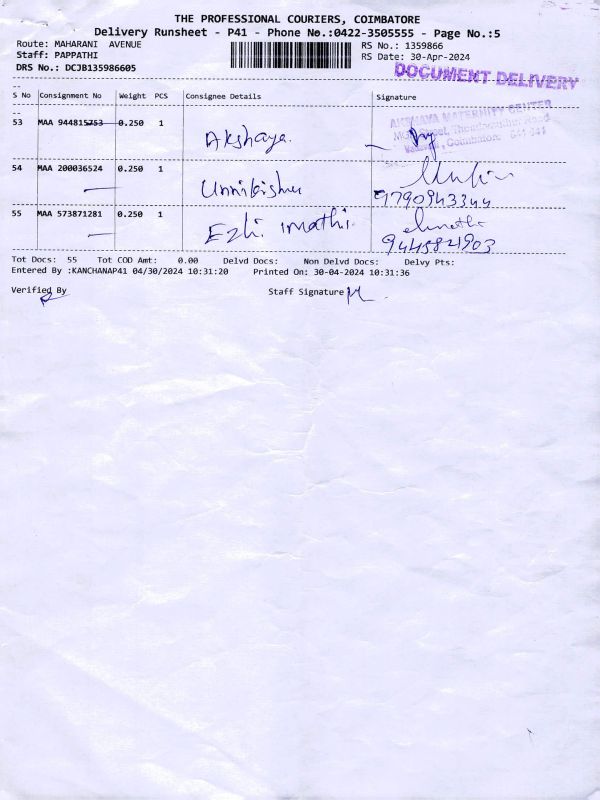 THE PROFESSIONAL COURIERS, COIMBATORE
Delivery Runsheet - P41 - Phone No.:0422-3505555 - Page No.:5
Route: MAHARANI AVENUE
Staff: PAPPATHI
DRS No.: DCJB135986605
RS No.: 1359866
RS Date: 30-Apr-2024
DOCUMENT DELIVERY
S No Consignment No Weight PCS Consignee Details Signature
53 MAA 944815753 0.250 1 Akshaya.
AKSHAYA MATERNITY CENTER
Street, Thondamuthur Road
Coimbatore - 641 041
54 MAA 200036524 0.250 1 Unnikishnu
9790943344
55 MAA 573871281 0.250 1 Ezhi imathi.
9445821903
Tot Docs: 55 Tot COD Amt: 0.00 Delvd Docs: Non Delvd Docs: Delvy Pts:
Entered By :KANCHANAP41 04/30/2024 10:31:20 Printed On: 30-04-2024 10:31:36
Verified By
Staff Signature